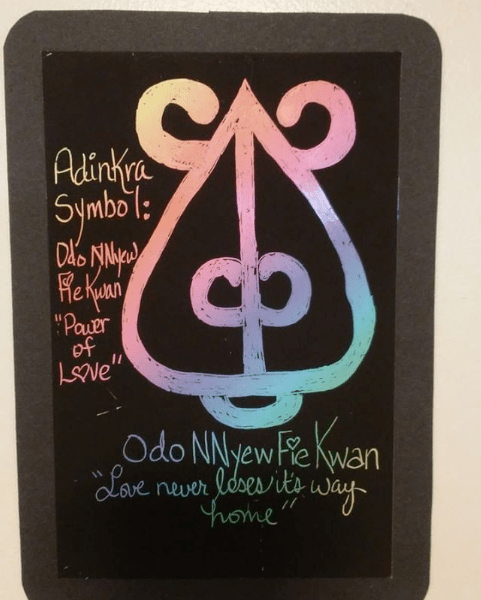 Adinkra
Symbol:
Odo NNyew
Fie Kwan
"Power
of
Love"
Odo NNyew Fie Kwan
"Love never loses it's way
home"